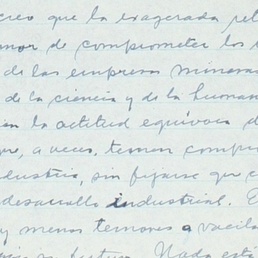 creo que la exagerada re
mor de comprometer los i
de las empresas mineras
de la ciencia y de la buena
en la actitud equívoca d
que, a veces, temen comp
dustria, sin fijarse que c
desarrollo industrial. E
y menos temores a vacila
futuro. Nada est